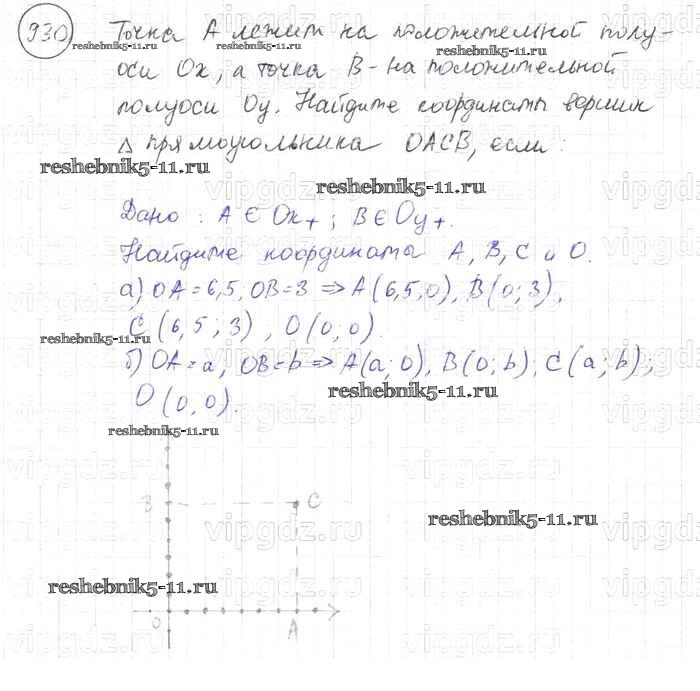 930
Точка А лежит на положительной полу-
оси Ox, а точка B - на положительной
полуоси Oy. Найдите координаты вершин
Δ прямоугольника OACB, если:
Дано: A ∈ Ox+; B ∈ Oy+.
Найдите координаты A, B, C и O.
а) OA = 6,5, OB = 3 ⇒ A(6,5,0), B(0; 3),
C (6,5; 3), O(0; 0).
б) OA = a, OB = b ⇒ A(a; 0), B(0; b), C(a; b);
O (0, 0).
3 C
0 A
reshebnik5-11.ru
reshebnik5-11.ru
reshebnik5-11.ru
reshebnik5-11.ru
reshebnik5-11.ru
reshebnik5-11.ru
reshebnik5-11.ru
reshebnik5-11.ru
reshebnik5-11.ru
reshebnik5-11.ru
vipgdz.ru